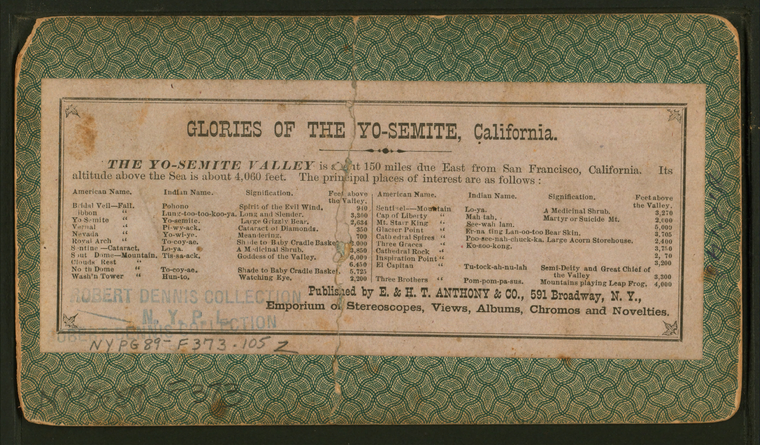 GLORIES OF THE YO-SEMITE, California.
THE YO-SEMITE VALLEY is about 150 miles due East from San Francisco, California. Its
altitude above the Sea is about 4,060 feet. The principal places of interest are as follows:
American Name. Indian Name. Signification. Feet above the Valley.
Bridal Veil—Fall. Pohono Spirit of the Evil Wind, 940
Ribbon " Lung-too-too-koo-ya. Long and Slender. 3,300
Yo-Semite " Yo-semite. Large Grizzly Bear, 2,634
Vernal " Pi-wy-ack. Cataract of Diamonds. 350
Nevada " Yo-wi-ye. Meandering. 700
Royal Arch " To-coy-ae. Shade to Baby Cradle Basket
Sentine—Cataract. Lo-ya. A Medicinal Shrub.
South Dome—Mountain. Tis-sa-ack. Goddess of the Valley. 6,000
Clouds Rest " 6,450
North Dome " To-coy-ae. Shade to Baby Cradle Basket, 5,725
Wash'n Tower " Hun-to. Watching Eye. 2,200
American Name. Indian Name. Signification. Feet above the Valley.
Sentinel—Mountain Lo-ya. A Medicinal Shrub. 3,270
Cap of Liberty " Mah tah, Martyr or Suicide Mt. 2,000
Mt. Starr King " See-wah lam. 5,000
Glacier Point " Bear Skin, 3,705
Cathedral Spires " Poo-see-nah-chuck-ka, Large Acorn Storehouse, 2,400
Three Graces " Ko-soo-kong. 3,750
Cathedral Rock "
Inspiration Point " 3,200
El Capitan " Tu-tock-ah-nu-lah Semi-Deity and Great Chief of
the Valley 3,300
Three Brothers " Pom-pom-pa-sus. Mountains playing Leap Frog, 4,000
Published by E. & H. T. ANTHONY & CO., 591 Broadway, N. Y.,
Emporium of Stereoscopes, Views, Albums, Chromos and Novelties.
ROBERT DENNIS COLLECTION
N. Y. P. L.
COLLECTION
NYPG89-F373-105 Z
F373